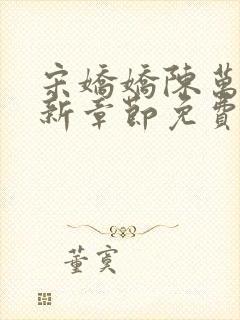 宋嬌嬌陳萬
新章節免費
董寞